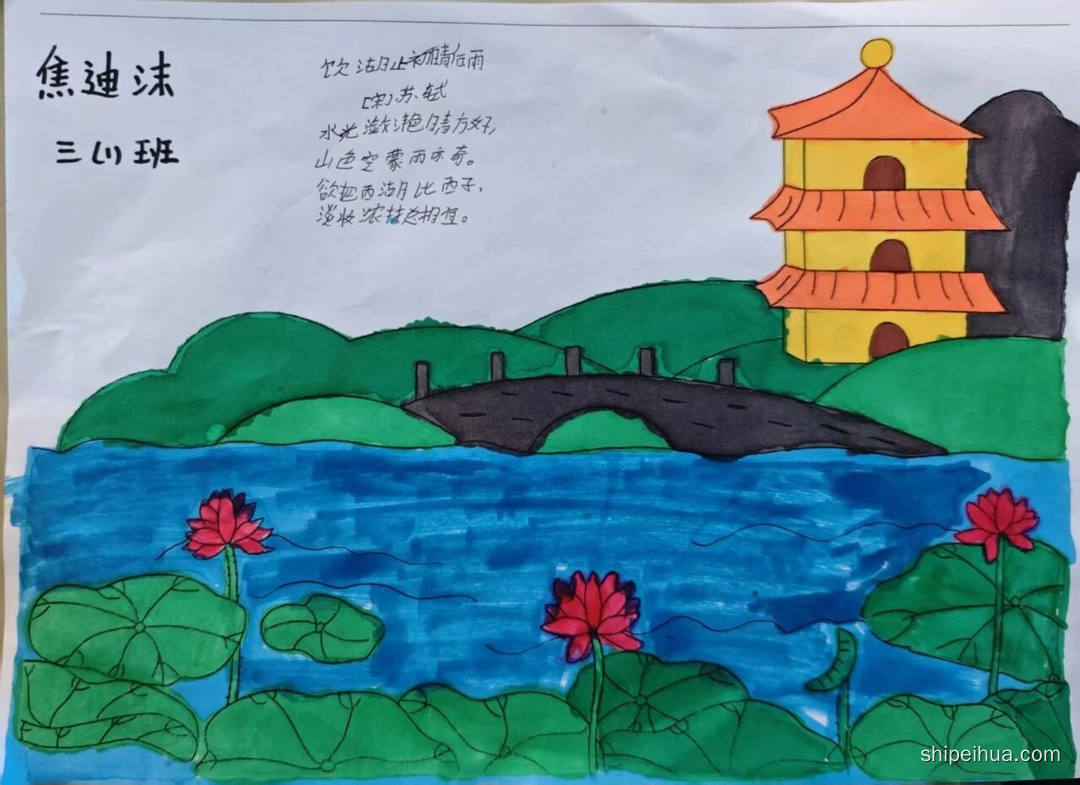 焦迪沫
三(1)班
饮湖上初晴后雨
[宋]苏轼
水光潋滟晴方好,
山色空蒙雨亦奇。
欲把西湖比西子,
淡妆浓抹总相宜。
shipeihua.com